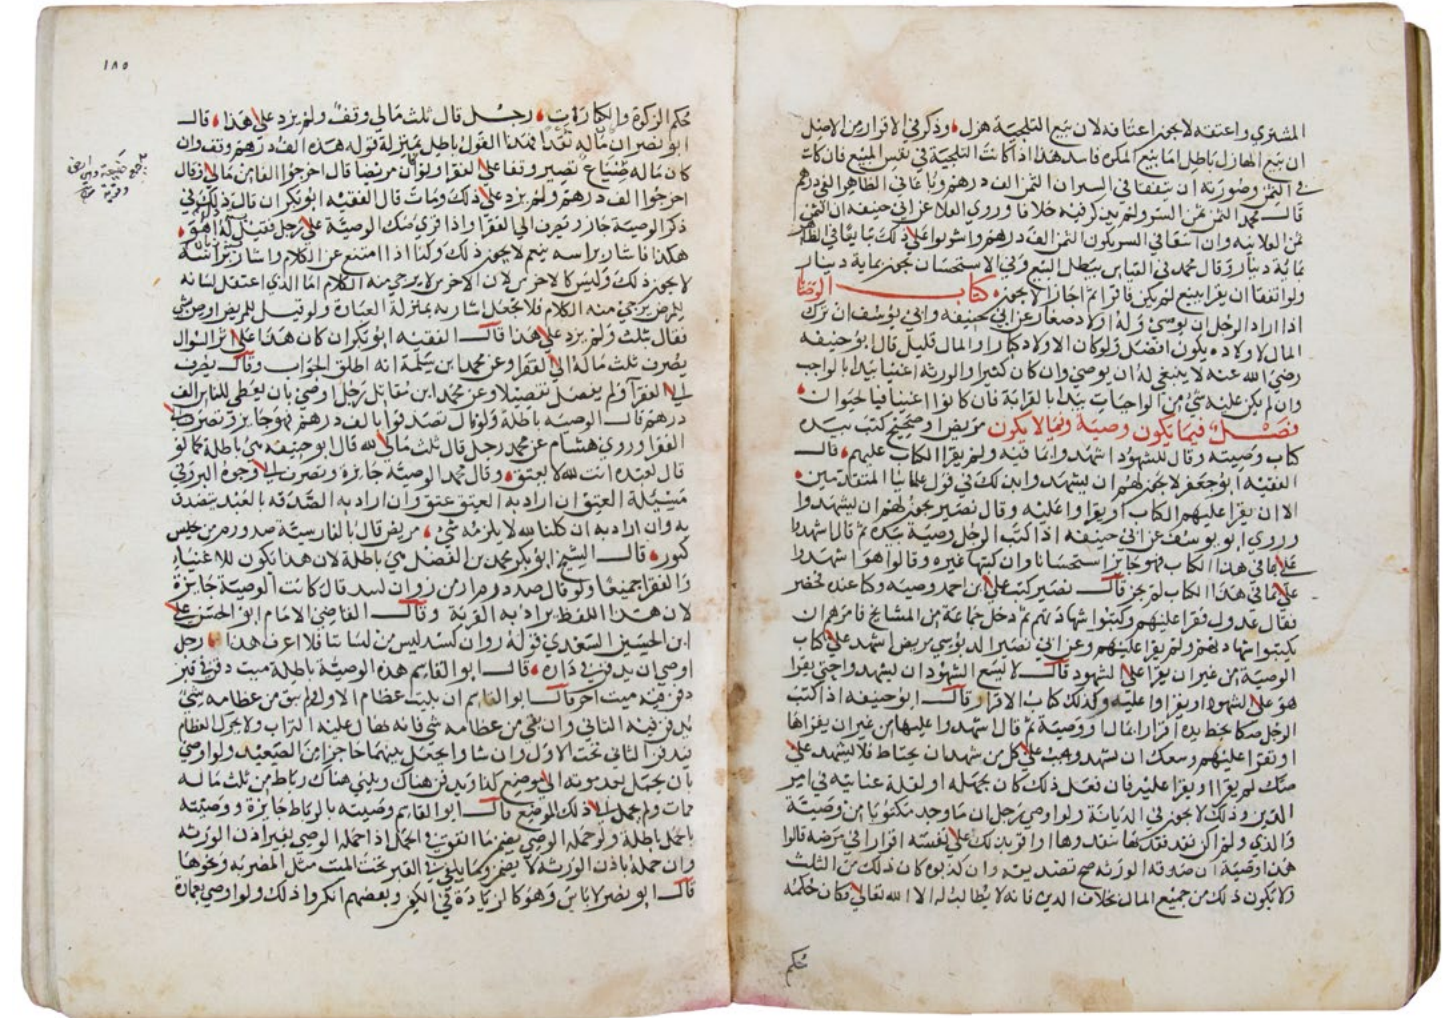 المشتري واعتقه لا يجوز اعتاقه لان بيع التلجية هزل وذكر في الاقرار من الاصل
ان بيع الهازل باطل اما بيع المكره فاسد هذا اذا كانت التلجية في نفس المبيع فان كانت
في الثمن وصورته ان يتفقا في السر ان الثمن الف درهم وتبايعا في الظاهر الفي درهم
قال محمد الثمن ثمن السر ولم يذكر فيه خلافا وروي العلا عن ابي حنيفه ان الثمن
ثمن العلانيه وان اتفقا في السر يكون الثمن الف درهم واشهدوا على ذلك ثم تبايعا في الظاهر
بماية دينار قال محمد في القياس يبطل البيع وفي الاستحسان يجوز بماية دينار
ولو اتفقا ان يقرا ببيع لم يكن فاقرا ثم اجازا لا يجوز كتاب الوصايا
اذا اراد الرجل ان يوصي وله اولاد صغار عن ابي حنيفه وابي يوسف ان ترك
المال لاولاده يكون افضل ولو كان الاولاد كبارا والمال قليل قال ابو حنيفه
رضي الله عنه لا ينبغي له ان يوصي وان كان كثيرا والورثه اغنيا يبدا بالواجب
وان لم يكن عليه شي من الواجبات يبدا بالقرابة فان كانوا اغنيا فبالجيران
فصل فيما يكون وصية وفيما لا يكون مريض او صحيح كتب بيده
كتاب وصيته وقال للشهود اشهدوا بما فيه ولم يقرا الكتاب عليهم قال
الفقيه ابو جعفر لا يجوز لهم ان يشهدوا بذلك في قول علمائنا المتقدمين
الا ان يقرا عليهم الكتاب او يقراوا عليه وقال نصير يجوز لهم ان يشهدوا
وروي ابو يوسف عن ابي حنيفه اذا كتب الرجل وصية بيده ثم قال اشهدوا
على ما في هذا الكتاب فهو جايز استحسانا وان كتبها غيره وقالوا هو اشهدوا
على ما في هذا الكتاب لم يجز قال نصير كتب علي بن احمد وصيه وكنا عنده فحضر
فقال عدول فقرا عليهم وكتبوا شهادتهم ثم دخل جماعة من المشايخ فامرهم ان
يكتبوا شهادتهم ولم يقرا عليهم وعن ابي نصير الدبوسي مريض اشهد على كتاب
الوصية من غير ان يقرا على الشهود قال لا يسع الشهود ان يشهدوا حتى يقرا
هو على الشهود او يقراوا عليه وكذلك كتاب الاقرار قال ابو حنيفه اذا كتب
الرجل صكا بخط يده اقرارا بمال او وصية ثم قال اشهدوا عليها من غير ان يقراها
او تقرا عليهم وسعك ان تشهد ويجب على كل من شهد ان يحتاط فلا يشهد على
صك لم يقرا او يقرا عليه فان فعل ذلك كان بجهله او لقلة عنايته في امر
الدين وذلك لا يجوز في الديانة ولو اوصى رجل ان ما وجد مكتوبا من وصية
والدي ولم اكن نفدتها فنفدوها او اقر بذلك على نفسه اقرارا في مرضه قالوا
هذا وصية ان صدقه الورثه صح تصديقه وان كذبوه كان ذلك من الثلث
ولا يكون ذلك من جميع المال بخلاف الدين فانه لا يطالب له الا الله تعالى فكان حكمه
حكم
١٨٥
حكم الزكوة والكفارات رجل قال ثلث مالي وقف ولم يزد على هذا قال
ابو نصر ان ماله نقدا فهذا القول باطل بمنزلة قوله هذه الف درهم وقف وان
كان ماله ضياع تصير وقفا على الفقرا ولو ان مريضا قال اخرجوا الفا من مالي او قال
اخرجوا الف درهم ولم يزد على ذلك ومات قال الفقيه ابو بكر ان قال ذلك في
ذكر الوصية جاز وتصرف الي الفقرا واذا قري صك الوصية على رجل فقيل له اهو
هكذا فاشار براسه بنعم لا يجوز ذلك وكذا اذا امتنع عن الكلام واشار براسه
لا يجوز ذلك وليس كالاخرس لان الاخرس لا يرجى منه الكلام اما الذي اعتقل لسانه
للمرض يرجي منه الكلام فلا يجعل اشارته بمنزلة العبارة ولو قيل للمريض اوص بشي
فقال ثلث ولم يزد على هذا قال الفقيه ابو بكر ان كان هذا على اثر السوال
يصرف ثلث ماله الي الفقرا وعن محمد بن سلمة انه اطلق الجواب وقال يصرف
الى الفقرا ولم يفصل تفصيلا وعن محمد ابن مقاتل رجل اوصى بان يعطى للناس الف
درهم قال الوصيه باطلة ولو قال تصدقوا بالف درهم فهو جايز وتصرف الى
الفقرا وروي هشام عن محمد رجل قال ثلث مالي لله قال ابو حنيفه هي باطلة كما لو
قال لعبده انت لله لا يعتق وقال محمد الوصية جايزة وتصرف الى وجوه البر وفي
مسيلة العتق ان اراد به العتق عتق وان اراد به الصدقه بالعبد يتصدق
به وان اراد به ان كلنا لله لا يلزمه شي مريض قال بالفارسية صد درم من بخش
كنيد قال الشيخ ابو بكر محمد بن الفضل هي باطلة لان هذا يكون للاغنياء
والفقرا جميعا ولو قال صد درم از من روان كنيد قال كانت الوصية جايزة
لان هذا اللفظ يراد به القربة وقال القاضي الامام ابو الحسن علي
ابن الحسين السغدي قوله روان كنيد ليس من لساننا فلا اعرف هذا رجل
اوصى ان يدفن في داره قال ابو القاسم هذه الوصية باطلة ميت دفن في قبر
دفن فيه ميت اخر قال ابو القاسم ان بليت عظام الاول ولم يبق من عظامه شي
يدفن فيه الثاني وان بقي من عظامه شي فانه يهال عليه التراب ولا يحرك العظام
ويدفن الثاني تحت الاول وان شاوا يجعل بينهما حاجزا من الصعيد ولو اوصي
بان يحمل بعد موته الى موضع كذا ويدفن هناك ويبني هناك رباط من ثلث ماله
فمات ولم يحمل الى ذلك الموضع قال ابو القاسم وصيته بالرباط جايزة ووصيته
بالحمل باطلة ولو حمله الوصي يضمن ما انفق في الحمل اذا حمله الوصي بغير اذن الورثه
وان حمله باذن الورثه لا يضمن وما يلقى في القبر تحت الميت مثل المضربه ونحوها
قال ابو نصر لا باس وهو كالزيادة في الكفن وبعضهم انكروا ذلك ولو اوصي بعمارة